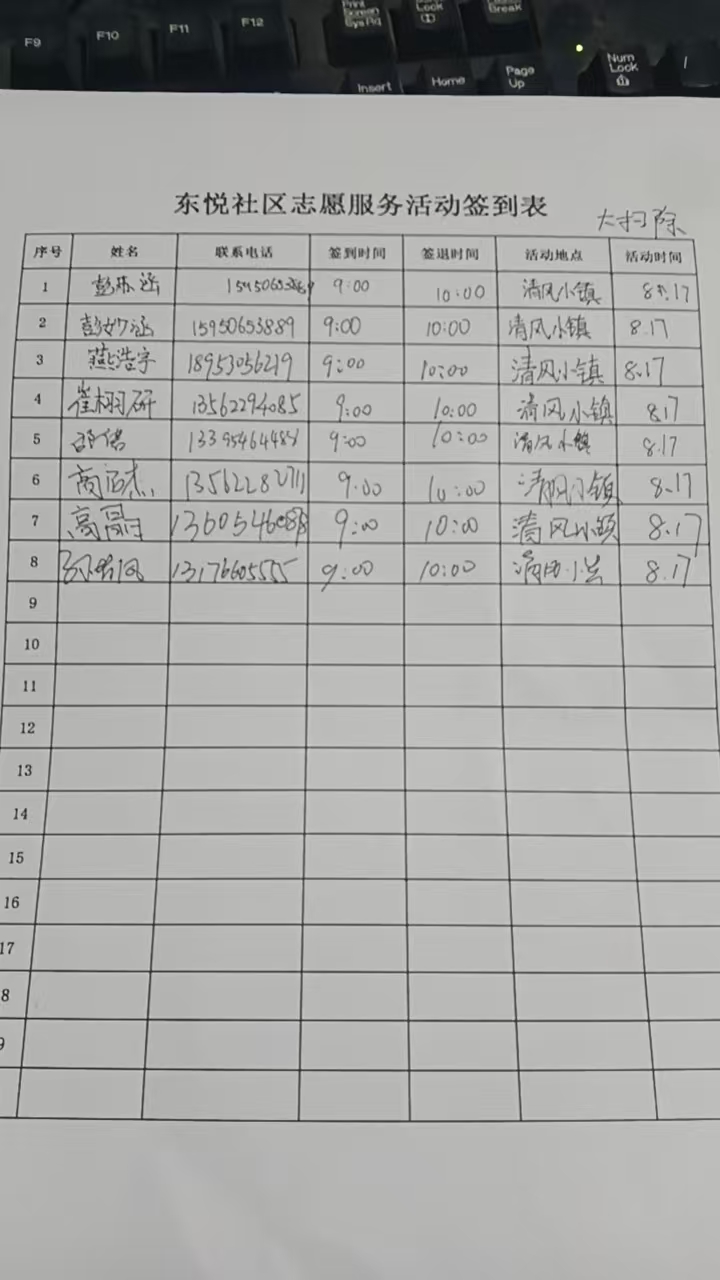 F9 F10 F11 F12 Print Screen SysRq Lock Break
Insert Home Page Up Num Lock
东悦社区志愿服务活动签到表
大扫除
序号 姓名 联系电话 签到时间 签退时间 活动地点 活动时间
1 彭 涵 9:00 10:00 清风小镇 8.17
2 彭妙涵 15950653889 9:00 10:00 清风小镇 8.17
3 燕浩宇 18953056219 9:00 10:00 清风小镇 8.17
4 崔栩研 13562294085 9:00 10:00 清风小镇 8.17
5 9:00 10:00 清风小镇 8.17
6 商 杰 13562282711 9:00 10:00 清风小镇 8.17
7 高 9:00 10:00 清风小镇 8.17
8 13176605555 9:00 10:00 8.17
9
10
11
12
13
14
15
16
17
8
9